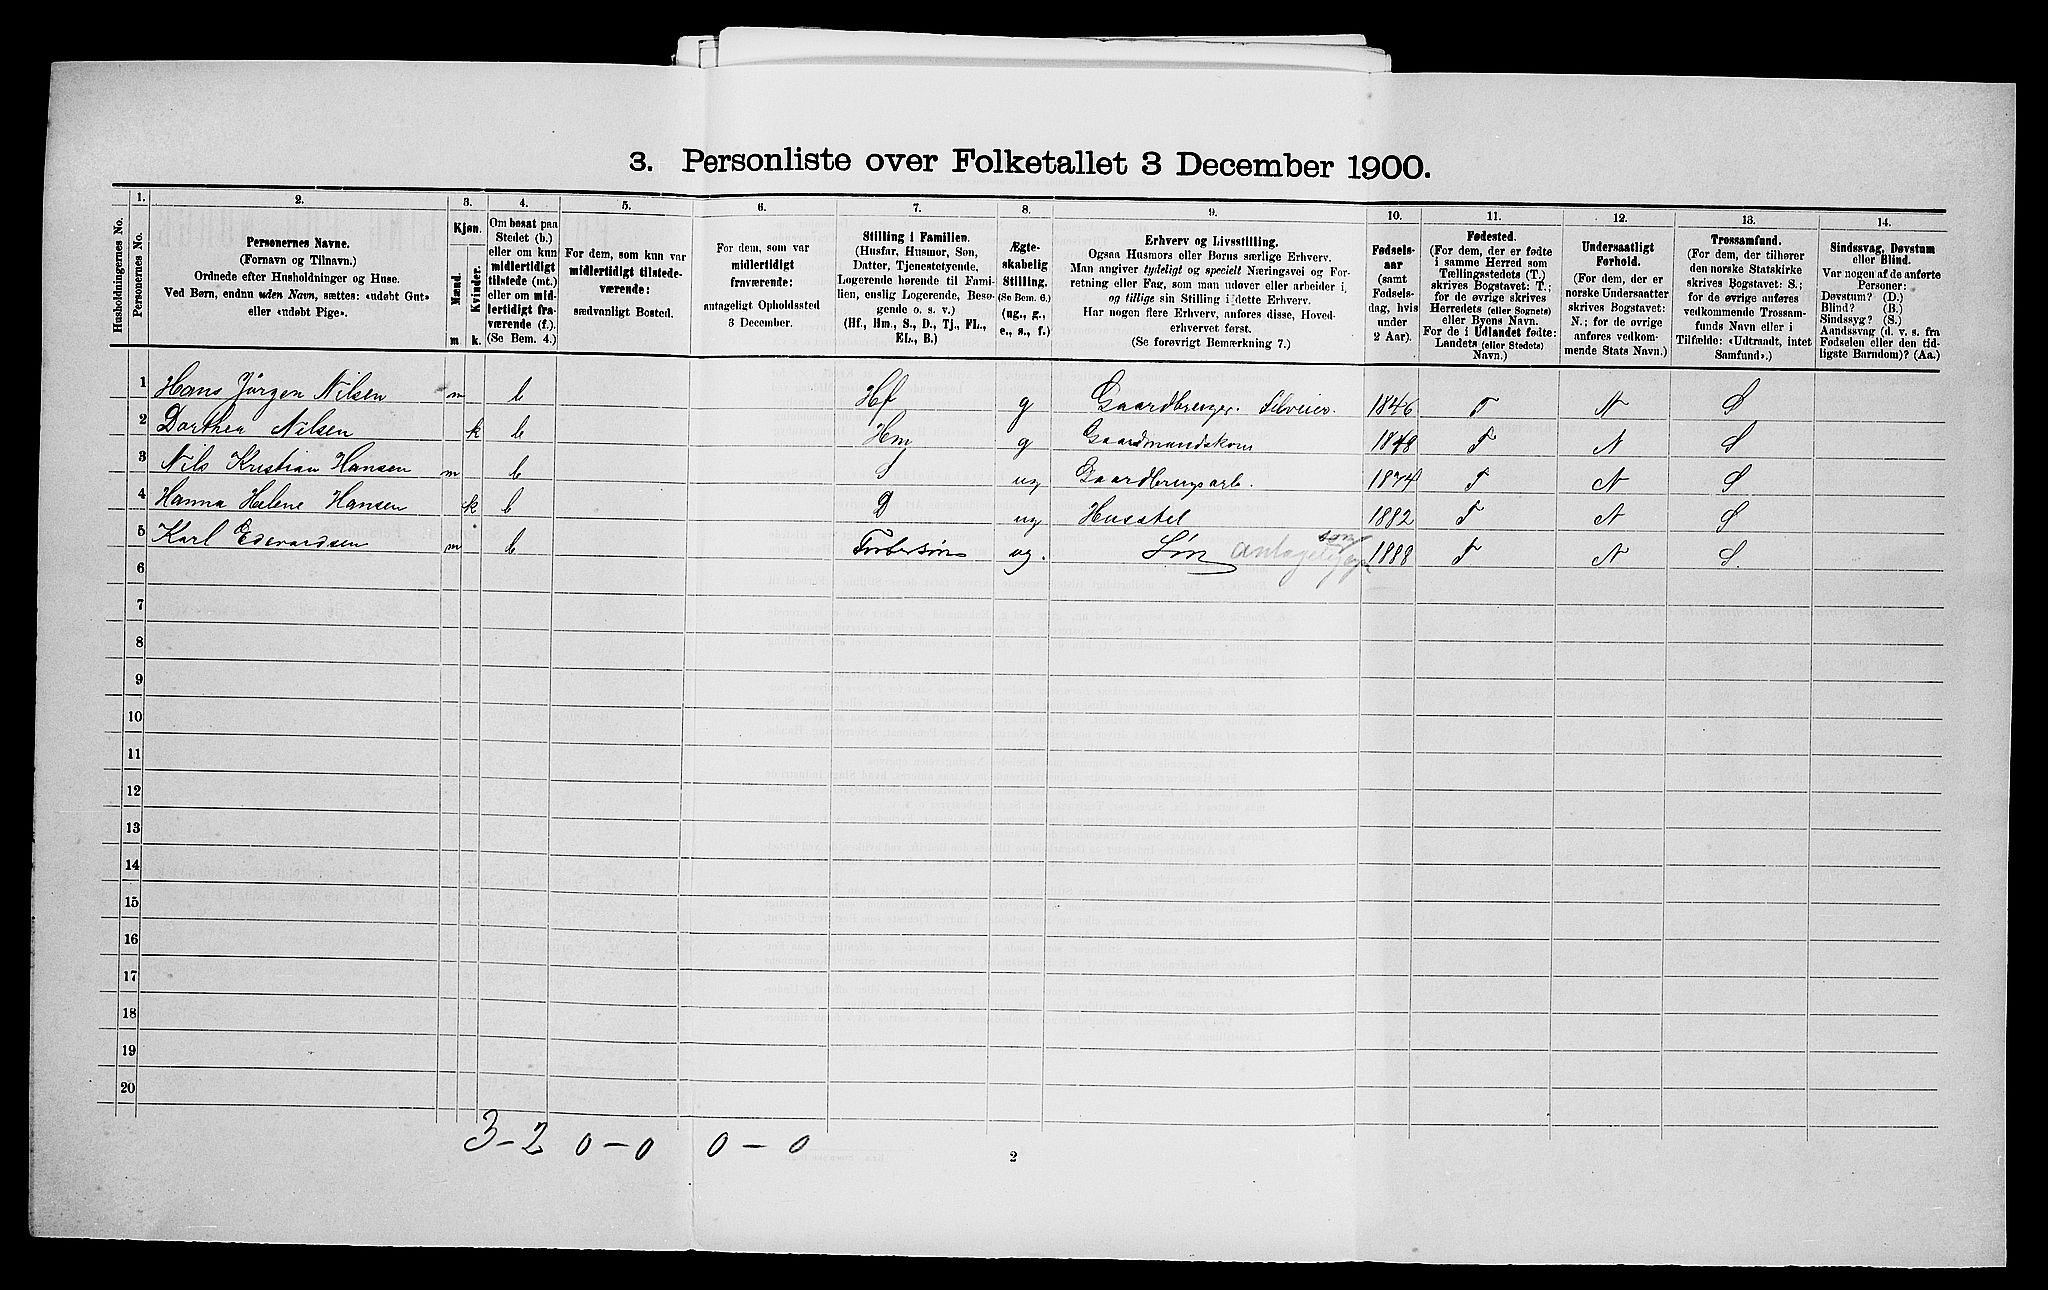 3. Personliste over Folketallet 3 December 1900.
Husholdningernes No.
1.
Personernes No.
2.
Personernes Navne.
(Fornavn og Tilnavn.)
Ordnede efter Husholdninger og Huse.
Ved Børn, endnu uden Navn, sættes: «udøbt Gut»
eller «udøbt Pige».
3.
Kjøn.
Mænd.
Kvinder.
m.
k.
4.
Om bosat paa
Stedet (b.)
eller om kun
midlertidigt
tilstede (mt.)
eller om mid-
lertidigt fra-
værende (f.).
(Se Bem. 4.)
5.
For dem, som kun var
midlertidigt tilstede-
værende:
sædvanligt Bosted.
6.
For dem, som var
midlertidigt
fraværende:
antageligt Opholdssted
3 December.
7.
Stilling i Familien.
(Husfar, Husmor, Søn,
Datter, Tjenestetyende,
Logerende hørende til Fami-
lien, enslig Logerende, Besø-
gende o. s. v.)
(Hf., Hm., S., D., Tj., FL.,
EL., B.)
8.
Ægte-
skabelig
Stilling.
(Se Bem. 6.)
(ug., g.,
e., s., f.)
9.
Erhverv og Livsstilling.
Ogsaa Husmors eller Børns særlige Erhverv.
Man angiver tydeligt og specielt Næringsvei og For-
retning eller Fag, som man udøver eller arbeider i,
og tillige sin Stilling i dette Erhverv.
Har nogen flere Erhverv, anføres disse, Hoved-
erhvervet først.
(Se forøvrigt Bemærkning 7.)
10.
Fødsels-
aar
(samt
Fødsels-
dag, hvis
under
2 Aar).
11.
Fødested.
(For dem, der er fødte
i samme Herred som
Tællingsstedets (T.)
skrives Bogstavet: T.;
for de øvrige skrives
Herredets (eller Sognets)
eller Byens Navn.
For de i Udlandet fødte:
Landets (eller Stedets)
Navn.)
12.
Undersaatligt
Forhold.
(For dem, der er
norske Undersaatter
skrives Bogstavet:
N.; for de øvrige
anføres vedkom-
mende Stats Navn.)
13.
Trossamfund.
(For dem, der tilhører
den norske Statskirke
skrives Bogstavet: S.;
for de øvrige anføres
vedkommende Trossam-
funds Navn eller i
Tilfælde: «Udtraadt, intet
Samfund».)
14.
Sindssvag, Døvstum
eller Blind.
Var nogen af de anførte
Personer:
Døvstum? (D.)
Blind? (B.)
Sindssyg? (S.)
Aandssvag (d. v. s. fra
Fødselen eller den tid-
ligste Barndom)? (Aa.)
1 Hans Jörgen Nilsen m b Hf g Gaardbruger. Selveier. 1846 T N S
2 Dorthea Nilsen k b Hm g Gaardmandskone 1848 T N S
3 Nils Kristian Hansen m b S ug Gaardbrugsarb. 1874 T N S
4 Hanna Helene Hansen k b D ug Husstel 1882 T N S
5 Karl Edevardsen m b Fostersøn ug. Søn 1888 T N S.
6
7
8
9
10
11
12
13
14
15
16
17
18
19
20
3-2 0-0 0-0
2